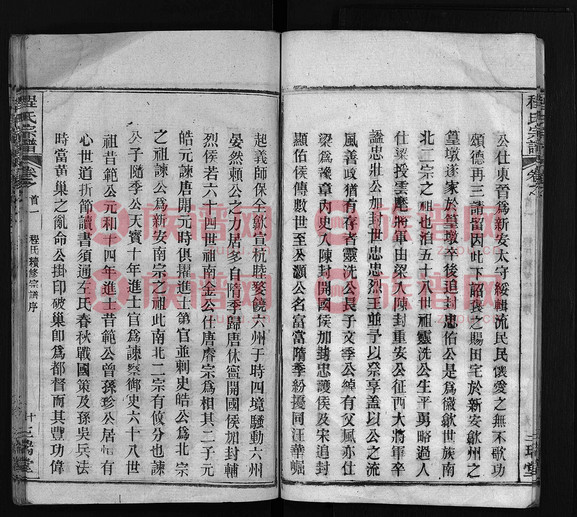 程氏宗譜
卷之
三瑞堂
公仕東晉爲新安太守綏輯流民民懷愛之無不歌功
頌德再三請留因此下詔褒之賜田宅於新安歙州之
篁墩遂家於篁墩卒後追封忠佑公是爲徽歙世族南
北二宗之祖也洎五十八世祖靈洗公生平勇略過人
仕梁授雲麾將軍由梁入陳封重安公征西大將軍卒
諡忠壯公加封世忠忠烈王並予以祭享蓋以公之流
風善政猶有存者靈洗公長子文季公綽有父風亦仕
梁爲豫章內史入陳封開國侯加封忠護侯及宋追封
顯佑侯傳數世至公顥公名富當隋季紛擾同汪華崛
起義師保全歙宣杭睦婺饒六州于時四境騷動六州
晏然賴公之力居多自隋季歸唐休寧開國侯加封輔
烈侯若六十四世祖南金公仕唐睿宗爲相其二子元
皓元諫唐開元時俱擢進士第官並剌史皓公爲北宗
之祖諫公爲新安南宗之祖此南北二宗有攸分也諫
公子隨季公天寶十年進士官爲諫察御史六十八世
祖昔範公元和十四年進士昔範公曾孫珍公居恒有
心世道折節讀書須通左氏春秋戰國策及孫吳兵法
時當黄巢之亂命公掛印破巢即爲都督而其豐功偉
程氏宗譜
卷之
首一
程氏續修宗譜序
十
三瑞堂
族谱网